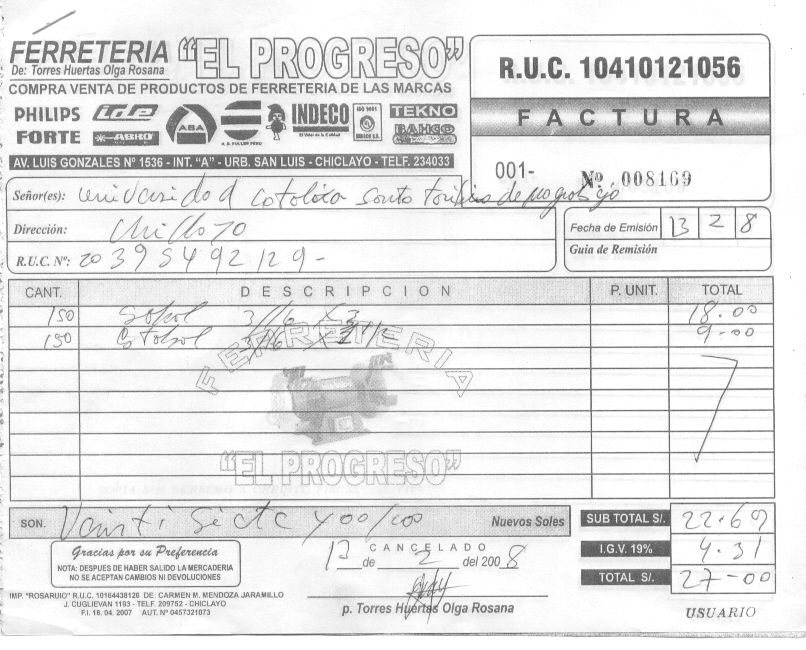 FERRETERIA "EL PROGRESO"
De: Torres Huertas Olga Rosana
COMPRA VENTA DE PRODUCTOS DE FERRETERIA DE LAS MARCAS
PHILIPS ABA INDECO TEKNO
FORTE ABRO BAHCO
AV. LUIS GONZALES Nº 1536 - INT. "A" - URB. SAN LUIS - CHICLAYO - TELF. 234033
R.U.C. 10410121056
FACTURA
001- Nº 008169
Señor(es): Universidad Catolica Santo Toribio de mogrobejo
Dirección: Chiclayo
R.U.C. Nº: 20395492129-
Fecha de Emisión 13 2 8
Guia de Remisión
CANT. DESCRIPCION P. UNIT. TOTAL
150 3/16 x 3 18.00
150 9-00
FERRETERIA
"EL PROGRESO"
SON. Veinti Siete y 00/100 Nuevos Soles
SUB TOTAL S/. 22.69
I.G.V. 19% 4.31
TOTAL S/. 27-00
Gracias por su Preferencia
NOTA: DESPUES DE HABER SALIDO LA MERCADERIA
NO SE ACEPTAN CAMBIOS NI DEVOLUCIONES
CANCELADO
13 de 2 del 2008
p. Torres Huertas Olga Rosana
IMP. "ROSARUIO" R.U.C. 10164438126 DE: CARMEN M. MENDOZA JARAMILLO
J. CUGLIEVAN 1193 - TELF. 209752 - CHICLAYO
F.I. 18. 04. 2007 AUT. Nº 0457321073
USUARIO